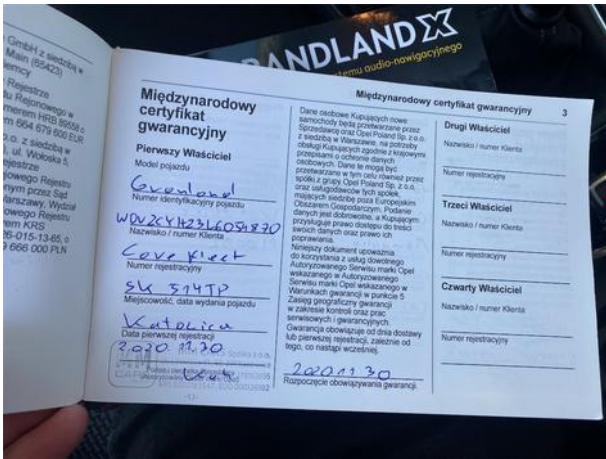 GmbH z siedzibą w
Main (65423)
iemcy
Rejestrze
du Rejonowego w
numerem HRB
em 664 679 600 EUR
o.o. z siedzibą w
ul. Wołoska 5,
ejestrze
jowego Rejestru
nym przez Sąd
Warszawy, Wydział
owego Rejestru
rem KRS
26-015-13-65, o
9 666 000 PLN
ANDLAND X
temu audio-nawigacyjnego
Międzynarodowy certyfikat gwarancyjny 3
Międzynarodowy
certyfikat
gwarancyjny
Pierwszy Właściciel
Model pojazdu
Grenland
Numer identyfikacyjny pojazdu
Nazwisko / numer Klienta
Care Fleet
Numer rejestracyjny
SK 514TP
Miejscowość, data wydania pojazdu
Katowice
Data pierwszej rejestracji
2020.11.30
Dane osobowe Kupujących nowe
samochody będą przetwarzane przez
Sprzedawcę oraz Opel Poland Sp. z o.o.
z siedzibą w Warszawie, na potrzeby
obsługi Kupujących zgodnie z krajowymi
przepisami o ochronie danych
osobowych. Dane te mogą być
przetwarzane w tym celu również przez
spółki z grupy Opel Poland Sp. z o.o.
oraz usługodawców tych spółek,
mających siedzibę poza Europejskim
Obszarem Gospodarczym. Podanie
danych jest dobrowolne, a Kupującym
przysługuje prawo dostępu do treści
swoich danych oraz prawo ich
poprawiania.
Niniejszy dokument upoważnia
do korzystania z usług dowolnego
Autoryzowanego Serwisu marki Opel
wskazanego w Autoryzowanego
Serwisu marki Opel wskazanego w
Warunkach gwarancji w punkcie 5
Zasięg geograficzny gwarancji
w zakresie kontroli oraz prac
serwisowych i gwarancyjnych.
Gwarancja obowiązuje od dnia dostawy
lub pierwszej rejestracji, zależnie od
tego, co nastąpi wcześniej.
2020 11 30
Rozpoczęcie obowiązywania gwarancji.
Drugi Właściciel
Nazwisko / numer Klienta
Numer rejestracyjny
Trzeci Właściciel
Nazwisko / numer Klienta
Numer rejestracyjny
Czwarty Właściciel
Nazwisko / numer Klienta
Numer rejestracyjny